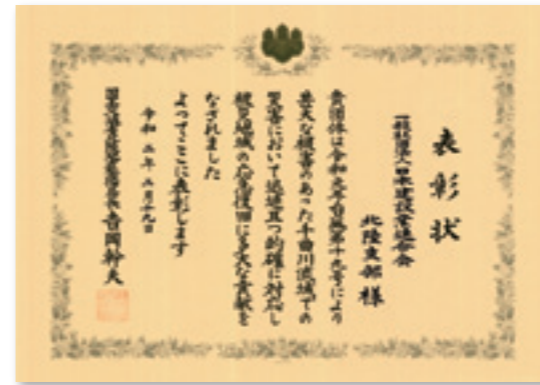 表彰状
一般社団法人日本建設業連合会
北陸支部 様
貴団体は令和元年台風第十九号により
甚大な被害のあった千曲川流域での
災害において迅速且つ的確に対応し
被災地域の応急復旧に多大な貢献を
なされました
よってここに表彰します
令和二年 月十九日
国土交通省北陸地方整備局長 吉岡幹夫